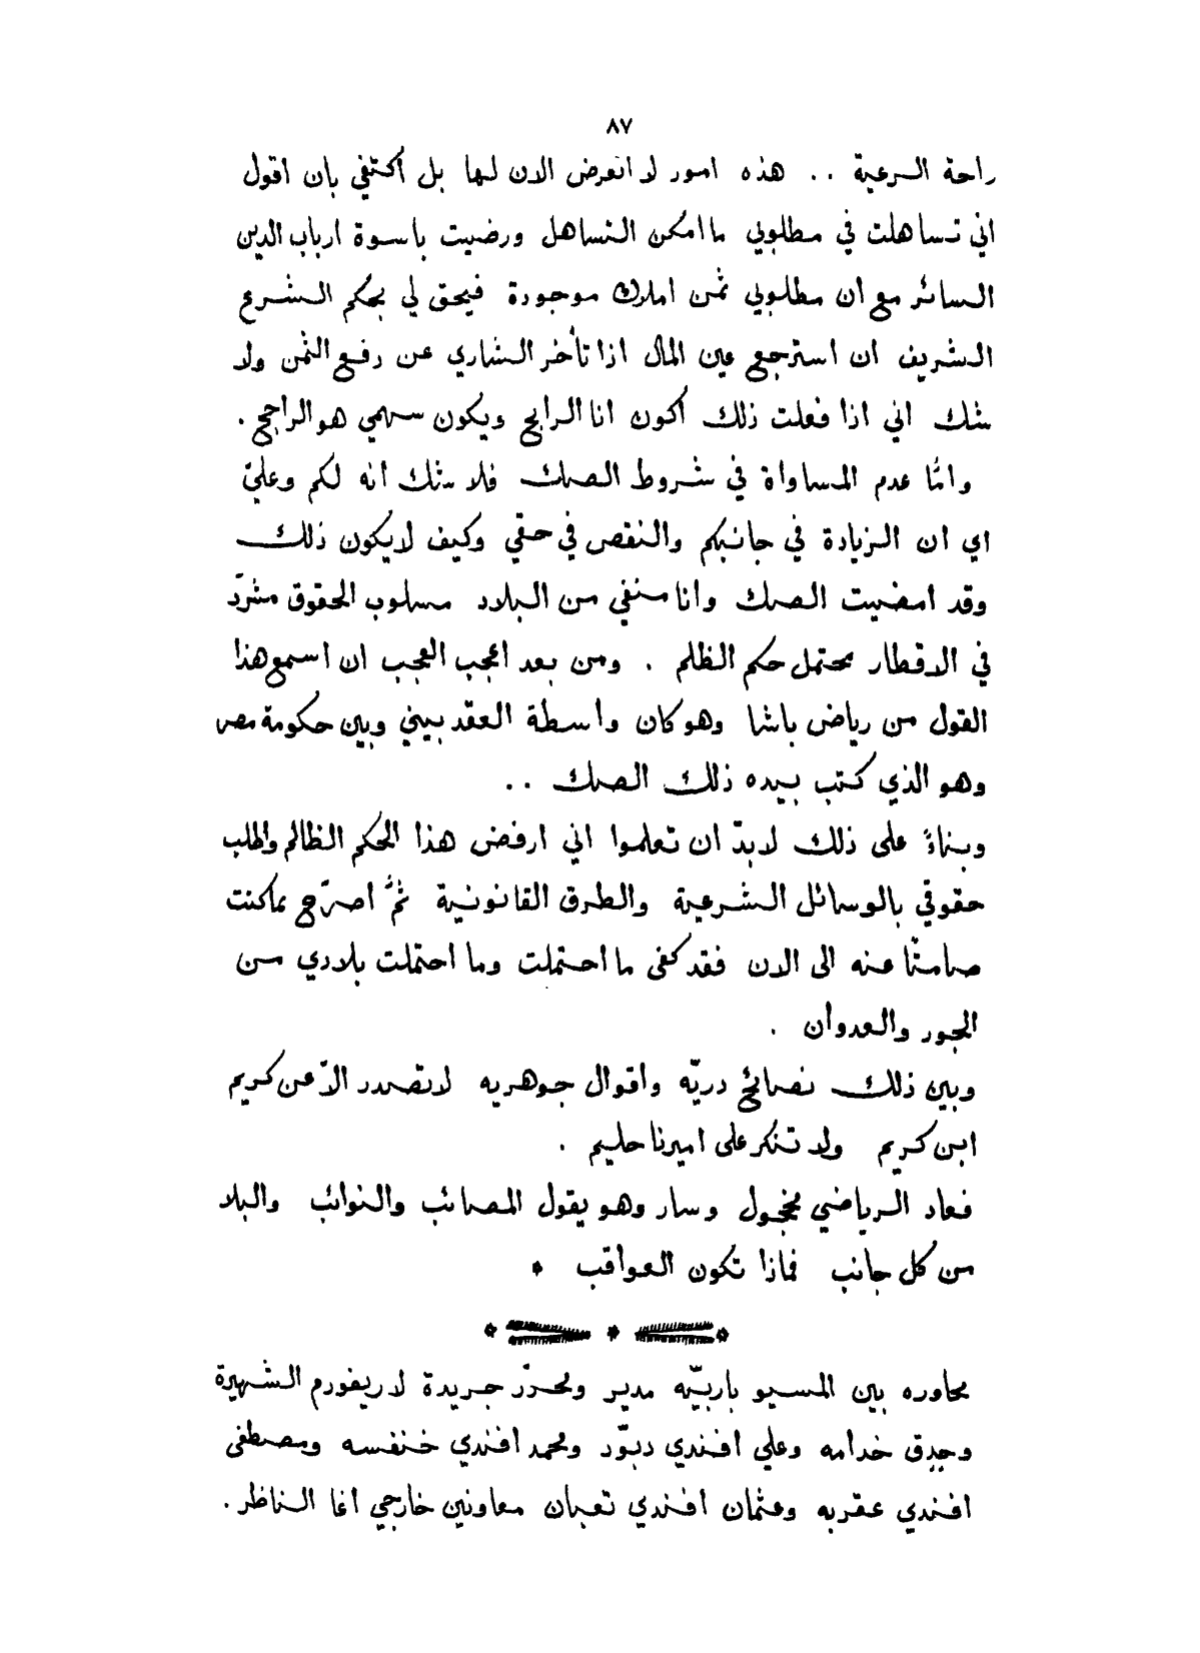 ٨٧
راحة الرعية .. هذه امور لا اتعرض الان لها بل أكتفي بان اقول
اني تساهلت في مطلوبي ما امكن التساهل ورضيت باسوة ارباب الدين
السائر مع ان مطلوبي ثمن املاك موجودة فيحق لي بحكم الشرع
الشريف ان استرجع عين المال اذا تأخر الشاري عن رفع الثمن ولا
شك اني اذا فعلت ذلك أكون انا الرابح ويكون سهمي هو الراجح .
وامّا عدم المساواة في شروط الصك فلا شك انه لكم وعليّ
اي ان الزيادة في جانبكم والنقص في حقي وكيف لا يكون ذلك
وقد امضيت الصك وانا منفي من البلاد مسلوب الحقوق مشرّد
في الاقطار محتمل حكم الظلم . ومن بعد اعجب العجب ان اسمع هذا
القول من رياض باشا وهو كان واسطة العقد بيني وبين حكومة مصر
وهو الذي كتب بيده ذلك الصك ..
وبناءً على ذلك لابدّ ان تعلموا اني ارفض هذا الحكم الظالم واطلب
حقوقي بالوسائل الشرعية والطرق القانونية ثمَّ اصرّح بما كنت
صامتًا عنه الى الان فقد كفى ما احتملت وما احتملت بلادي من
الجور والعدوان .
وبين ذلك نصائح دريّه واقوال جوهريه لا تصدر الاّ عن كريم
ابن كريم ولا تنكر على اميرنا حليم .
فعاد الرياضي مخجول وسار وهو يقول المصائب والنوائب والبلا
من كل جانب فماذا تكون العواقب *
محاوره بين المسيو باربيّه مدير ومحرّر جريدة لاريفورم الشهيرة
وجوق خدامه وعلي افندي دبّور ومحمد افندي خنفسه ومصطفى
افندي عقربه وعثمان افندي تعبان معاونين خارجي اغا الناظر .